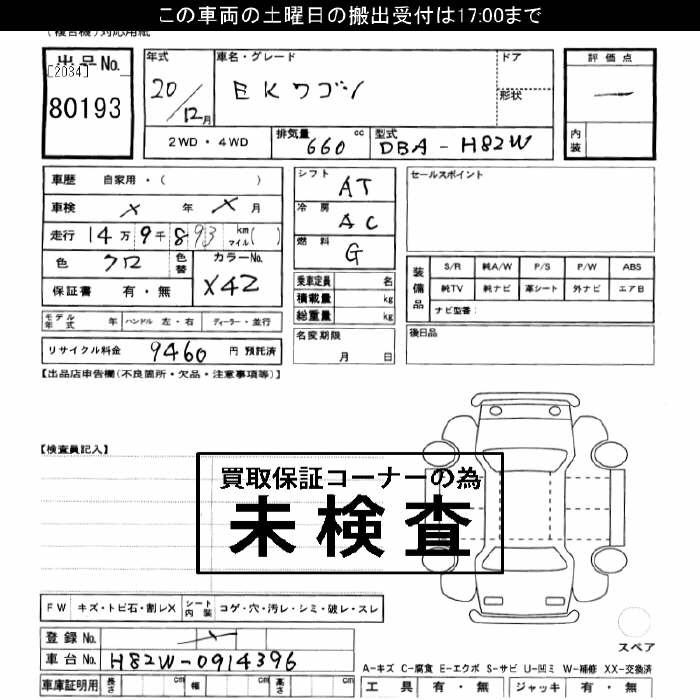 この車両の土曜日の搬出受付は17:00まで
(複合機)対応用紙
出品No.
[2034]
80193
年式
20/12月
車名・グレード
EKワゴン
ドア
形状
評価点
一
内装
2WD・4WD
排気量 660 cc
型式 DBA-H82W
車歴 自家用・( )
車検 × 年 × 月
走行 14万9千893 km マイル( )
色 クロ
色替
カラーNo. X42
保証書 有・無
モデル年式 年 ハンドル 左・右 ディーラー・並行
リサイクル料金 9460 円 預託済
シフト AT
冷房 AC
燃料 G
乗車定員 名
積載量 kg
総重量 kg
名変期限
月 日
セールスポイント
装備品
S/R 純A/W P/S P/W ABS
純TV 純ナビ 革シート 外ナビ エアB
ナビ型番:
後日品
【出品店申告欄(不良箇所・欠品・注意事項等)】
【検査員記入】
買取保証コーナーの為
未検査
FW キズ・トビ石・割レX シート内装 コゲ・穴・汚レ・シミ・破レ・スレ
登録No. ×
車台No. H82W-0914396
車庫証明用 長さ cm 幅 cm 高さ cm
スペア
A-キズ C-腐食 E-エクボ S-サビ U-凹ミ W-補修 XX-交換済
工具 有・無 ジャッキ 有・無